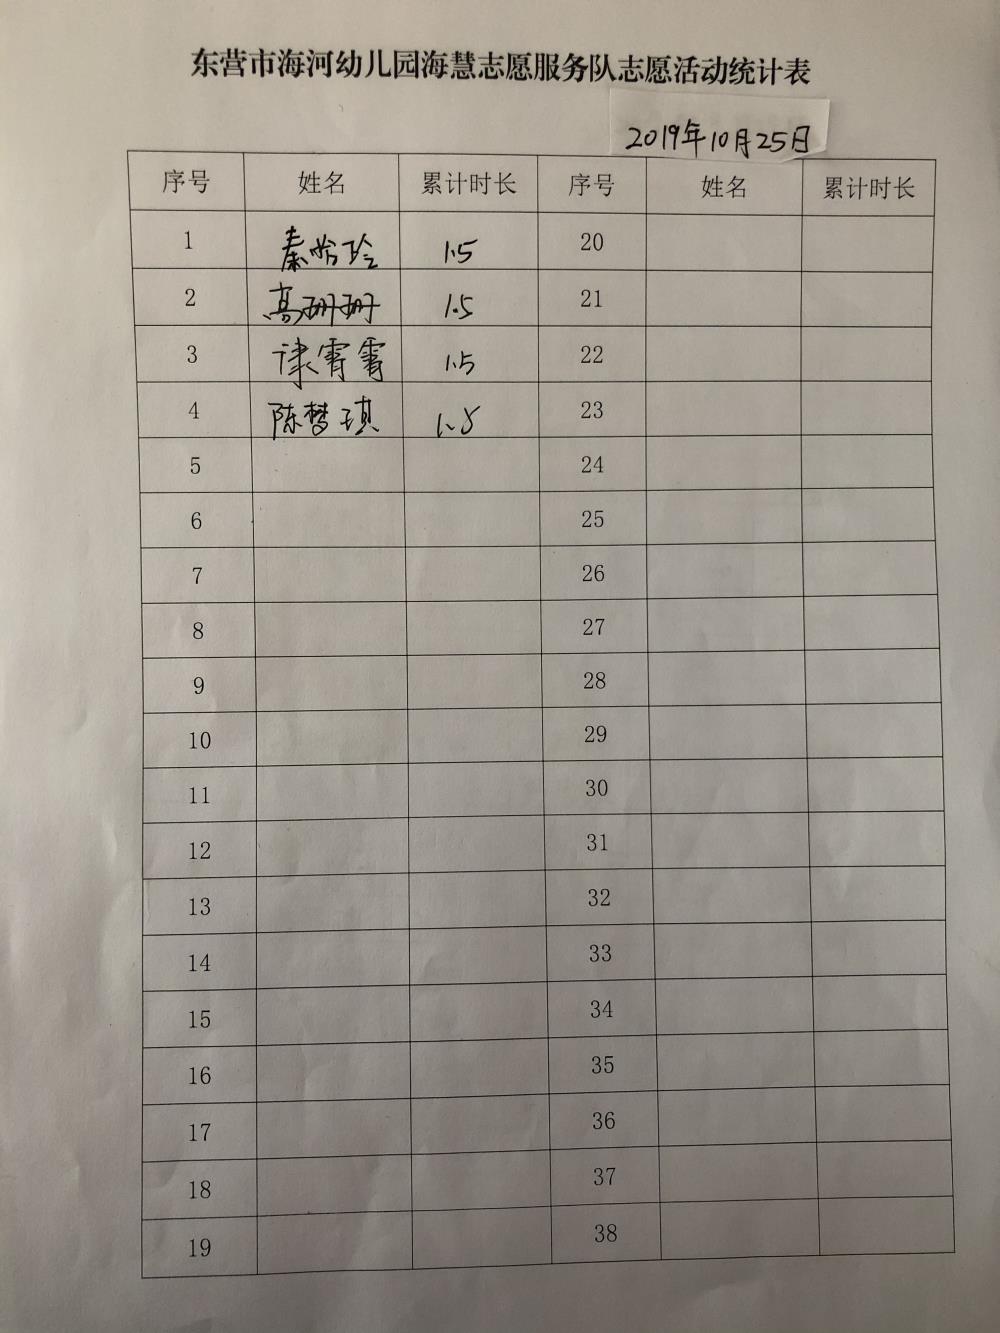 东营市海河幼儿园海慧志愿服务队志愿活动统计表
2019年10月25日
序号 姓名 累计时长 序号 姓名 累计时长
1 秦 玲 1.5 20
2 高珊珊 1.5 21
3 霄霄 1.5 22
4 陈梦琪 1.5 23
5 24
6 25
7 26
8 27
9 28
10 29
11 30
12 31
13 32
14 33
15 34
16 35
17 36
18 37
19 38